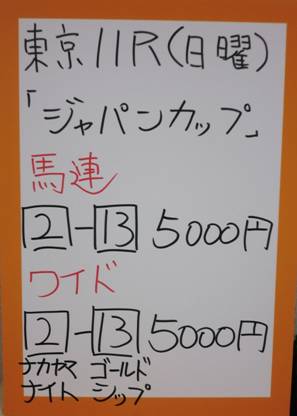 東京11R(日曜)
「ジャパンカップ」
馬連
2-13 5000円
ワイド
2-13 5000円
ナカヤマ ゴールド
ナイト シップ